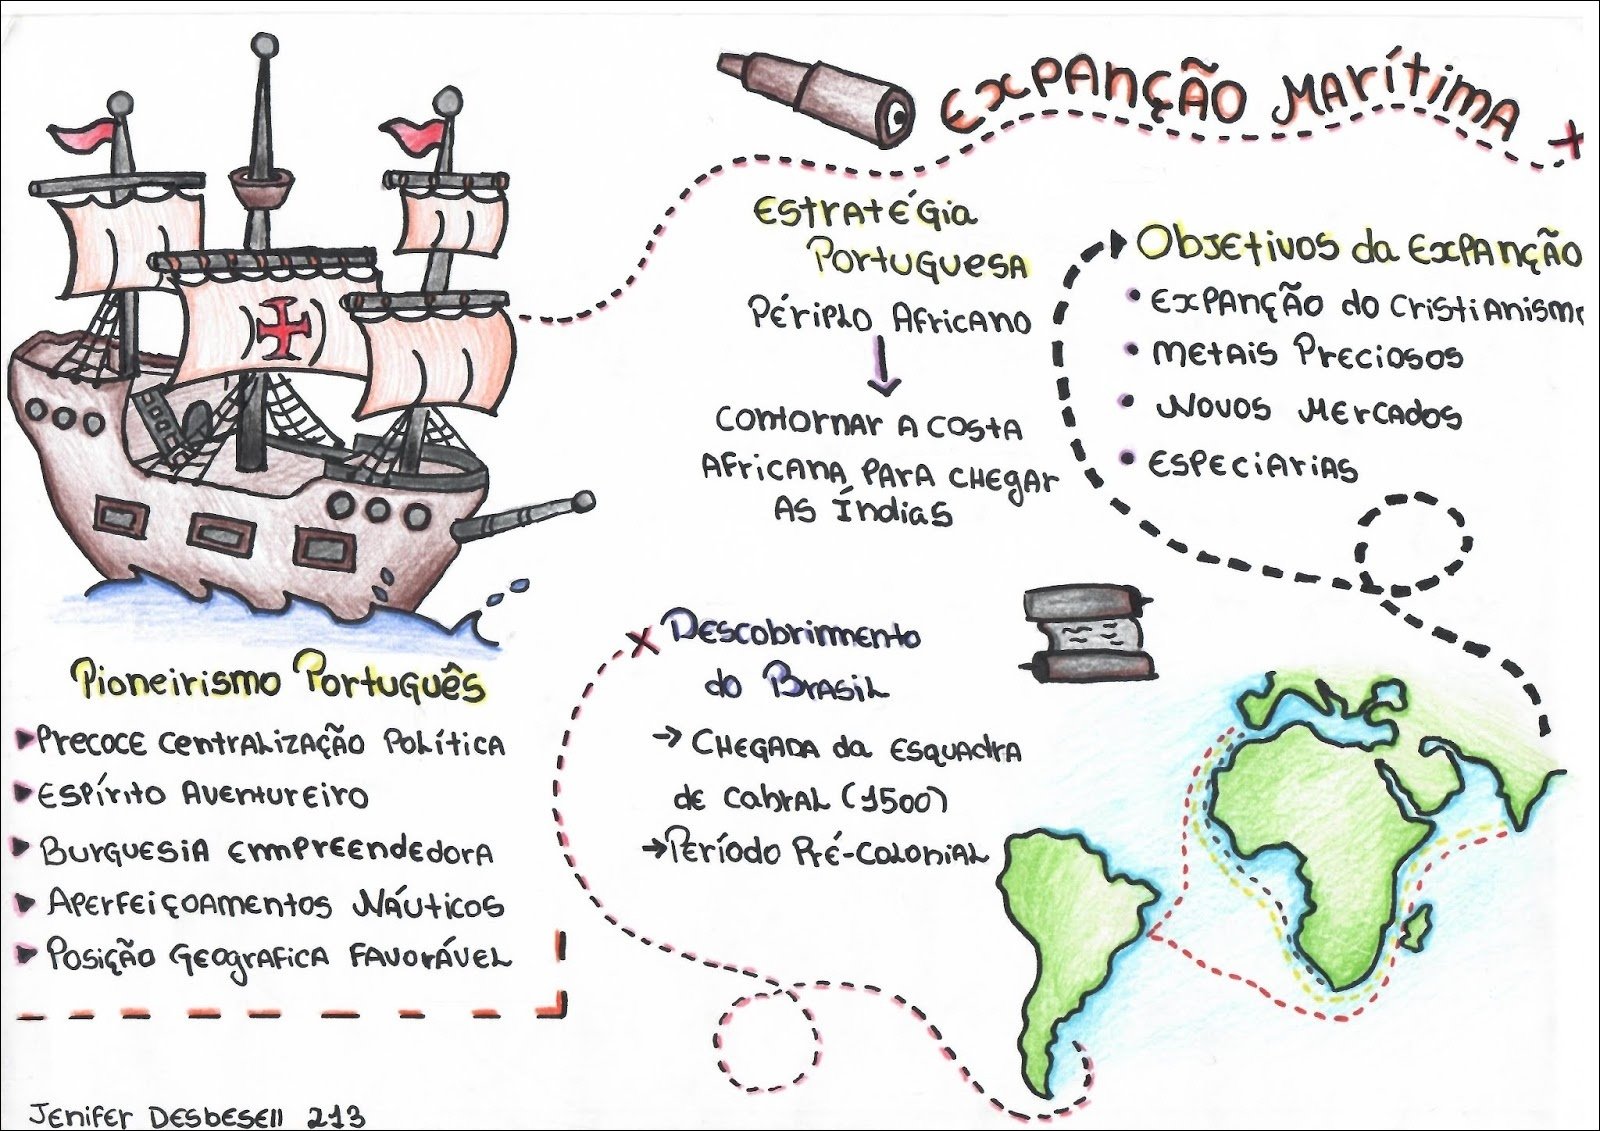 Expanção Marítima
Estratégia
Portuguesa
Périplo Africano
Contornar a costa
Africana para chegar
as Índias
Objetivos da Expanção
Expanção do Cristianismo
Metais Preciosos
Novos Mercados
Especiarias
Pioneirismo Português
Precoce Centralização Política
Espírito Aventureiro
Burguesia Empreendedora
Aperfeiçoamentos Náuticos
Posição Geografica Favorável
Descobrimento
do Brasil
→ Chegada da Esquadra
de Cabral (1500)
→ Período Pré-Colonial
Jenifer Desbesell 213